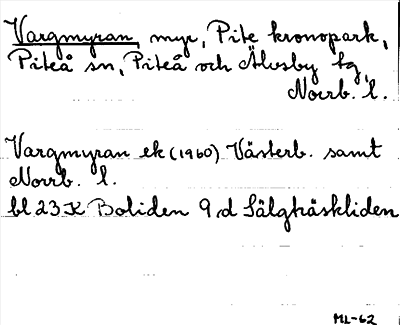 Vargmyran, myr, Pite kronopark,
Piteå sn, Piteå och Älvsby tg,
Norrb. l.
Vargmyran ek (1960) Västerb. samt
Norrb. l.
bl 23 K Boliden 9 d Sälgträskliden
ML-62